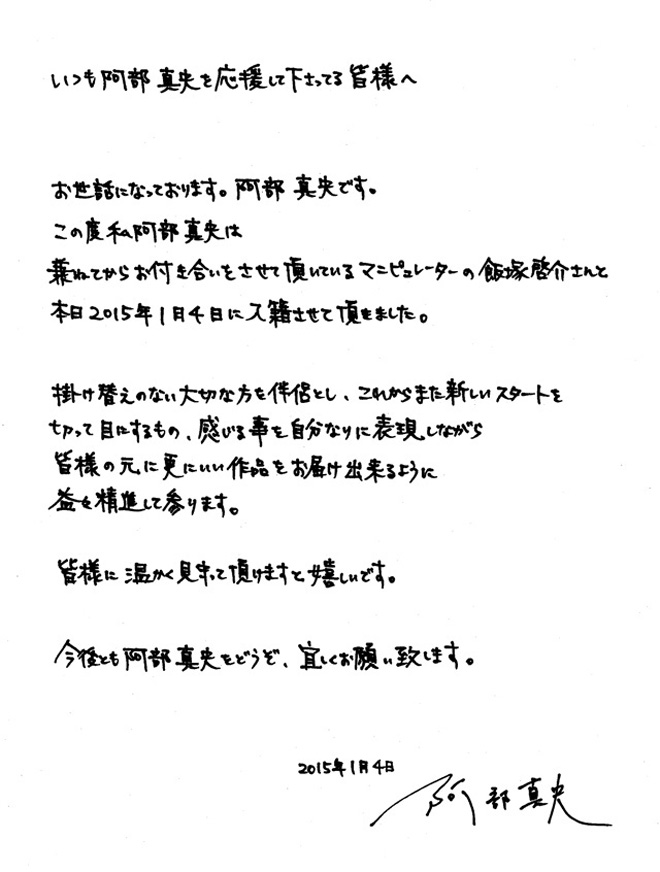 いつも阿部真央を応援して下さってる皆様へ
お世話になっております。阿部 真央です。
この度私阿部真央は
兼ねてからお付き合いをさせて頂いているマニピュレーターの飯塚啓介さんと
本日2015年1月4日に入籍させて頂きました。
掛け替えのない大切な方を伴侶とし、これからまた新しいスタートを
切って目にするもの、感じる事を自分なりに表現しながら
皆様の元に更にいい作品をお届け出来るように
益々精進して参ります。
皆様に温かく見守って頂けますと嬉しいです。
今後とも阿部真央をどうぞ、宜しくお願い致します。
2015年1月4日
阿部真央